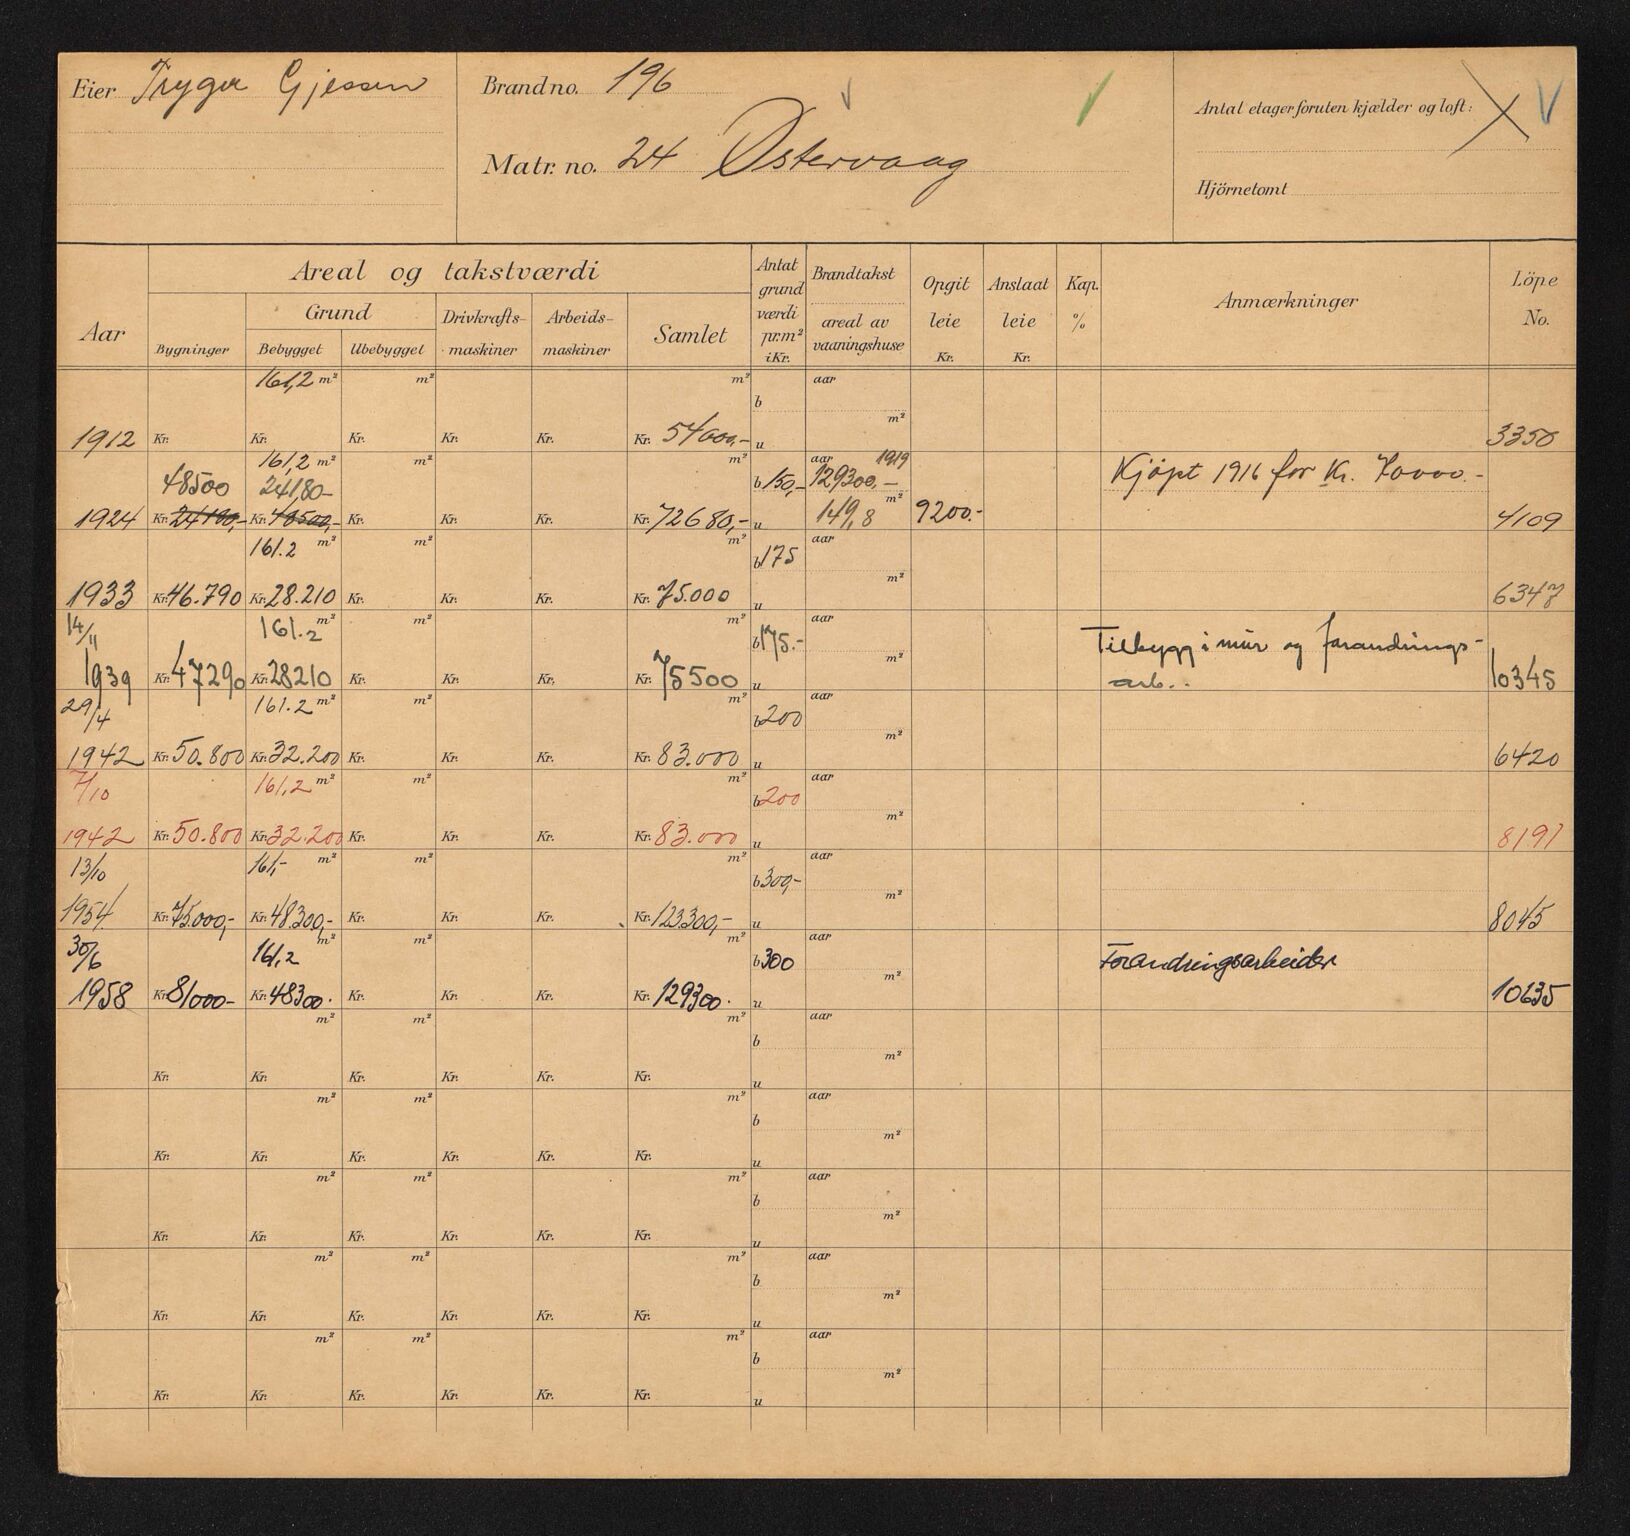 Eier Trygve Gjessen
Brandno. 196
Matr. no. 24 Østervaag
Antal etager foruten kjælder og loft:
Hjörnetomt
Aar
Areal og takstværdi
Grund
Bygninger
Bebygget
Ubebygget
Drivkrafts-
maskiner
Arbeids-
maskiner
Samlet
Antat
grund
værdi
pr.m²
i Kr.
Brandtakst
areal av
vaaningshuse
Opgit
leie
Kr.
Anslaat
leie
Kr.
Kap.
%
Anmærkninger
Löpe
No.
161,2 m² m² m² aar
b
m²
1912 Kr. Kr. Kr. Kr. Kr. Kr. 54000,- u 3350
161,2 m² m² m² aar 1919
48500 24180,- b 150,- 129300,- Kjöpt 1916 for Kr. 70000.-
m²
1924 Kr. 24180,- Kr. 48500,- Kr. Kr. Kr. Kr. 72680,- u 149,8 9200.- 4109
161.2 m² m² m² aar
b 175
m²
1933 Kr. 46.790 Kr. 28.210 Kr. Kr. Kr. Kr. 75.000 u 6347
14/11 161.2 m² m² m² aar
b 175.- Tilbygg i mur og forandrings-
m²
1939 Kr. 47290 Kr. 28210 Kr. Kr. Kr. Kr. 75500 u arb.. 10345
29/4 161.2 m² m² m² aar
b 200
m²
1942 Kr. 50.800 Kr. 32.200 Kr. Kr. Kr. Kr. 83.000 u 6420
7/10 161,2 m² m² m² aar
b 200
m²
1942 Kr. 50.800 Kr. 32.200 Kr. Kr. Kr. Kr. 83.000 u 8191
13/10 161,- m² m² m² aar
b 300,-
m²
1954. Kr. 75000,- Kr. 48.300,- Kr. Kr. Kr. Kr. 123300,- u 8045
30/6 161,2 m² m² m² aar
b 300 Forandringsarbeider
m²
1958 Kr. 81000- Kr. 48300. Kr. Kr. Kr. Kr. 129300. u 10635
m² m² m² aar
b
m²
Kr. Kr. Kr. Kr. Kr. Kr. u
m² m² m² aar
b
m²
Kr. Kr. Kr. Kr. Kr. Kr. u
m² m² m² aar
b
m²
Kr. Kr. Kr. Kr. Kr. Kr. u
m² m² m² aar
b
m²
Kr. Kr. Kr. Kr. Kr. Kr. u
m² m² m² aar
b
m²
Kr. Kr. Kr. Kr. Kr. Kr. u